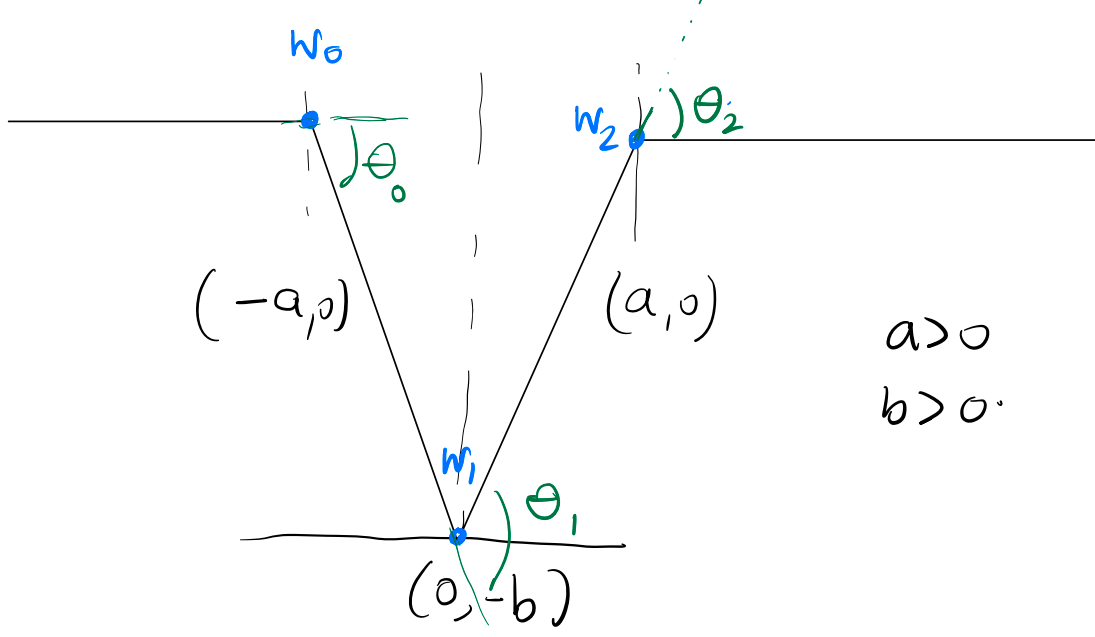 W₀
W₂
θ₂
θ₀
(-a,0)
(a,0)
a>0
b>0.
W₁
θ₁
(0,-b)